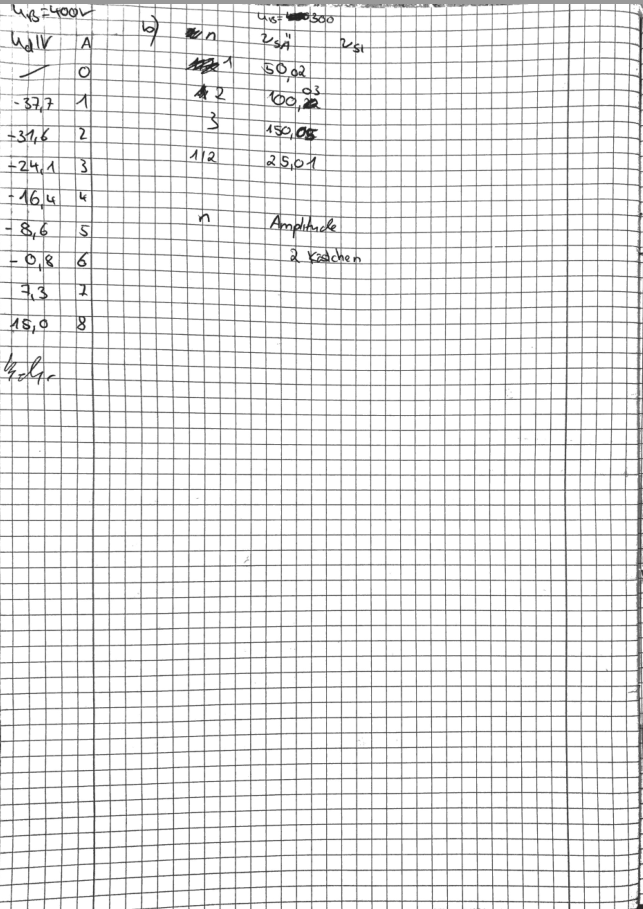 U_B=400V
U_d/V A
— 0
-37,7 1
-31,6 2
-24,1 3
-16,4 4
-8,6 5
-0,8 6
7,3 7
15,0 8
b) U_B= 300
n ν_sÄ ν_si
1 50,02
2 100,03
3 150,05
1/2 25,01
n Amplitude
2 Kästchen